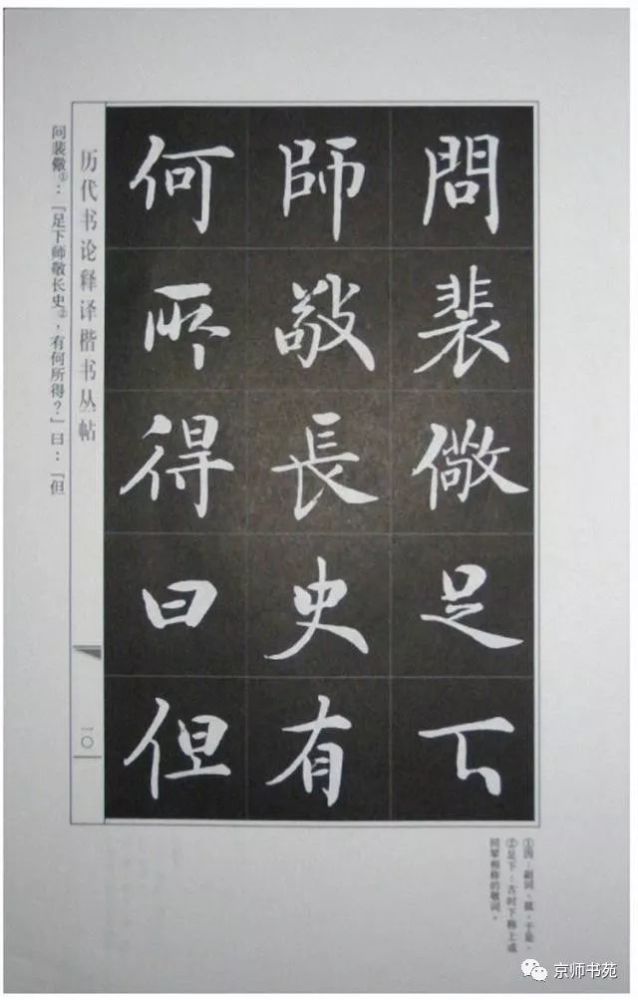 問裴儆足下
師敬長史有
何所得曰但
历代书论释译楷书丛帖
一〇
问裴儆①：「足下师敬长史②，有何所得？」曰：「但
①因：副词，就，于是。
②足下：古时下称上或
同辈相称的敬词。
京师书苑